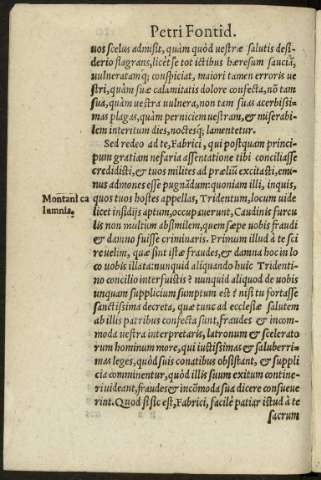 Petri Fontid.
uos scelus admisit, quàm quòd uestræ salutis desi-
derio flagrans, licèt se tot ictibus hæresum sauciā,
uulneratamq́; conspiciat, maiori tamen erroris ue
stri, quàm suæ calamitatis dolore confecta, nō tam
sua, quàm uestra uulnera, non tam suas acerbissi-
mas plagas, quàm perniciem uestram, & miserabi-
lem interitum dies, noctesq́; lamentetur.
Sed redeo ad te, Fabrici, qui postquam princi-
pum gratiam nefaria assentatione tibi conciliasse
credidisti, & tuos milites ad præliū excitasti, emi-
nus admones esse pugnādum: quoniam illi, inquis,
Montani ca
lumnia.
quos tuos hostes appellas, Tridentum, locum uide
licet insidijs aptum, occupauerunt, Caudinis furcu
lis non multum absimilem, quem sæpe uobis fraudi
& damno fuisse criminaris. Primum illud à te sci
re uelim, quæ sint istæ fraudes, & damna hoc in lo
co uobis illata: nunquid aliquando huic Tridenti-
no concilio interfuistis? nunquid aliquod de uobis
unquam supplicium sumptum est? nisi tu fortasse
sanctissima decreta, quæ tunc ad ecclesiæ salutem
ab illis patribus confecta sunt, fraudes & incom-
moda uestra interpretaris, latronum & scelerato
rum hominum more, qui iustissimas & saluberri-
mas leges, quòd suis conatibus obsistant, & suppli
cia comminentur, quòd illis suum exitum contine-
ri uideant, fraudes & incōmoda sua dicere consueue
rint. Quod si sic est, Fabrici, facilè patiar istud à te
sacrum